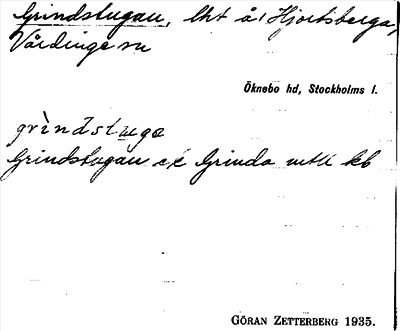 Grindstugan, lht å Hjortsberga,
Vårdinge sn
Öknebo hd, Stockholms l.
grìndstuga
Grindstugan ek Grinda kb
GÖRAN ZETTERBERG 1935.